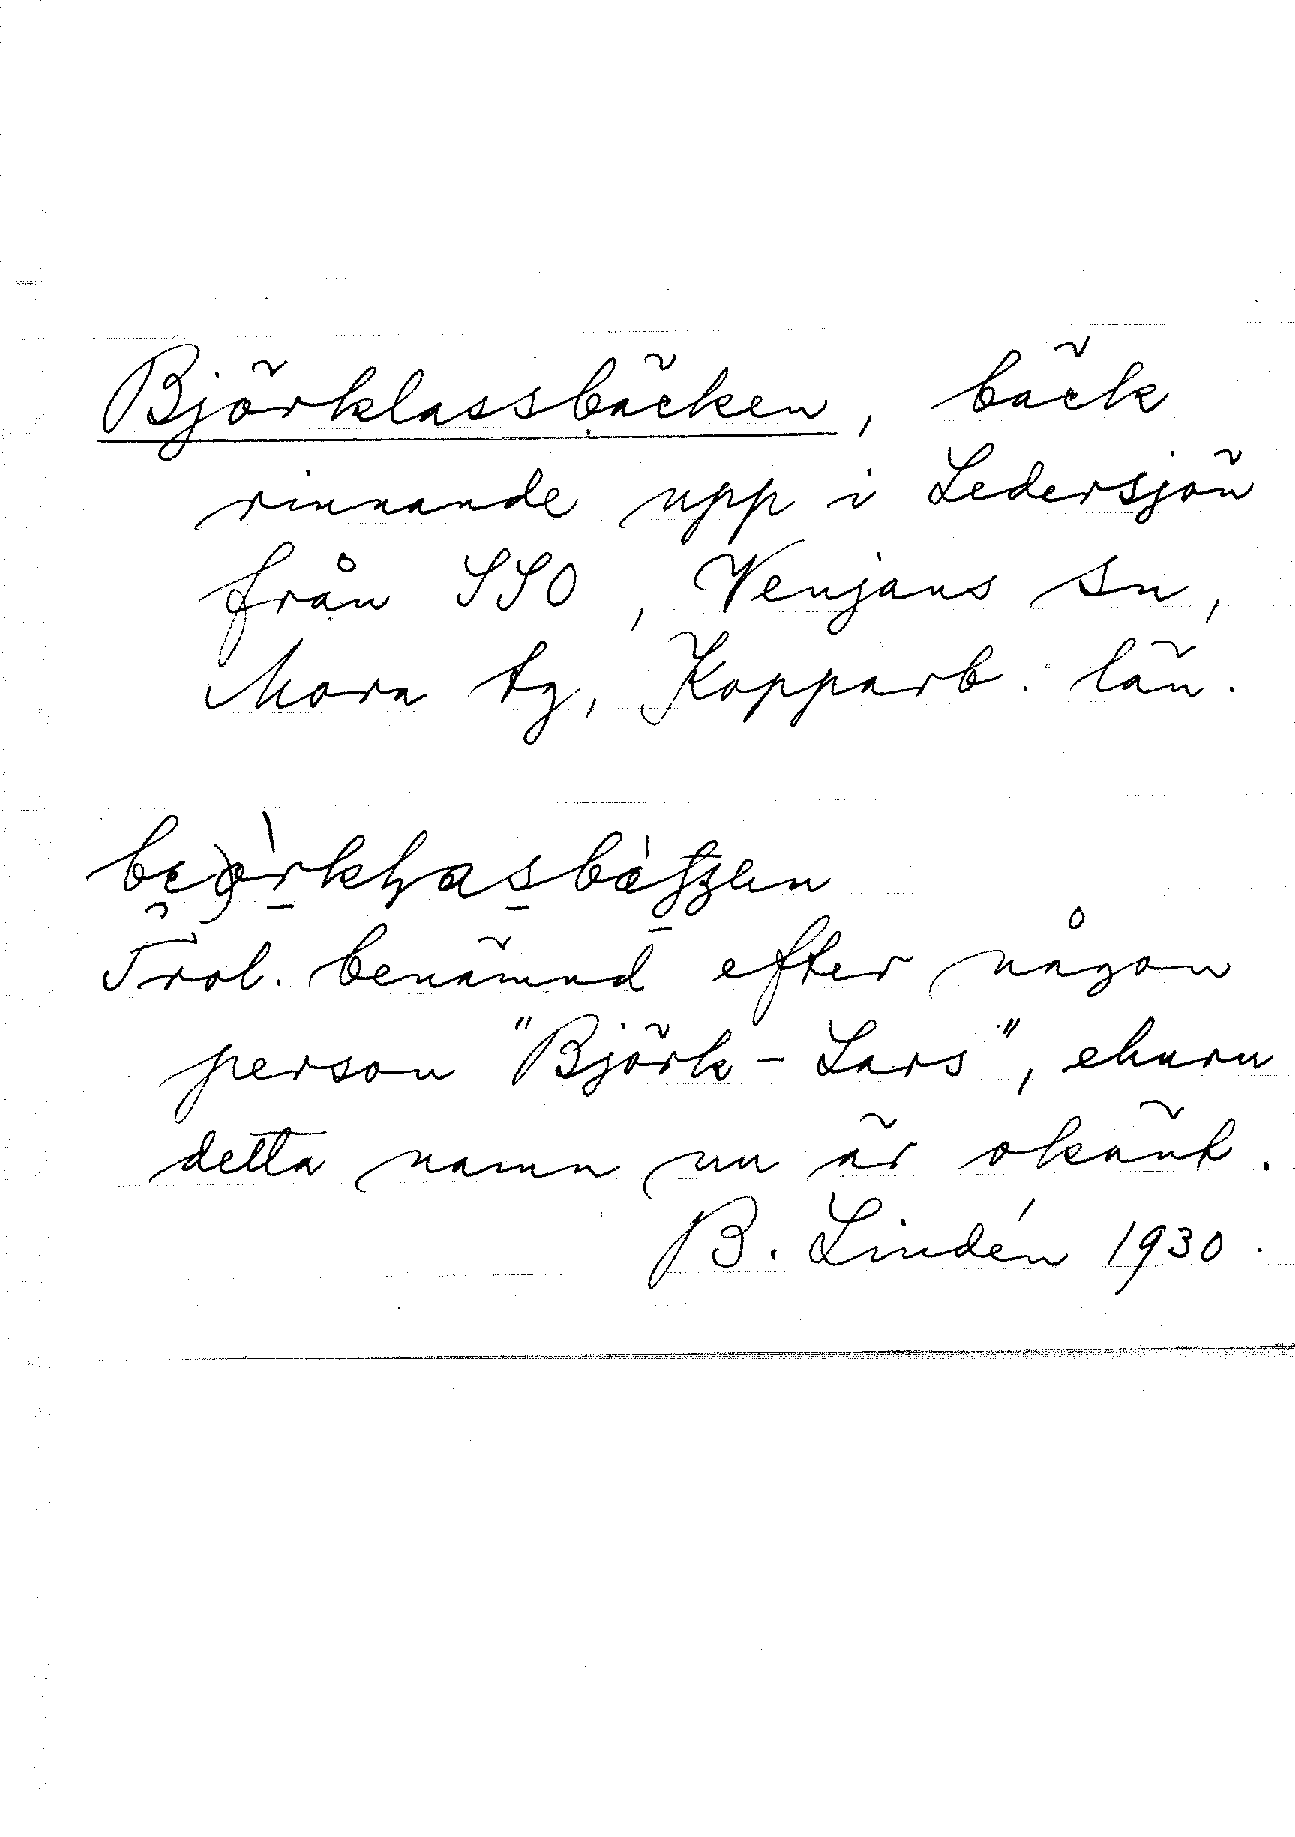 Björklassbäcken, bäck
rinnande upp i Ledersjön
från SSO, Venjans sn,
Mora tg, Kopparb. län.
Trol. benämnd efter någon
person "Björk-Lars", ehuru
detta namn nu är okänt.
B. Lindén 1930.